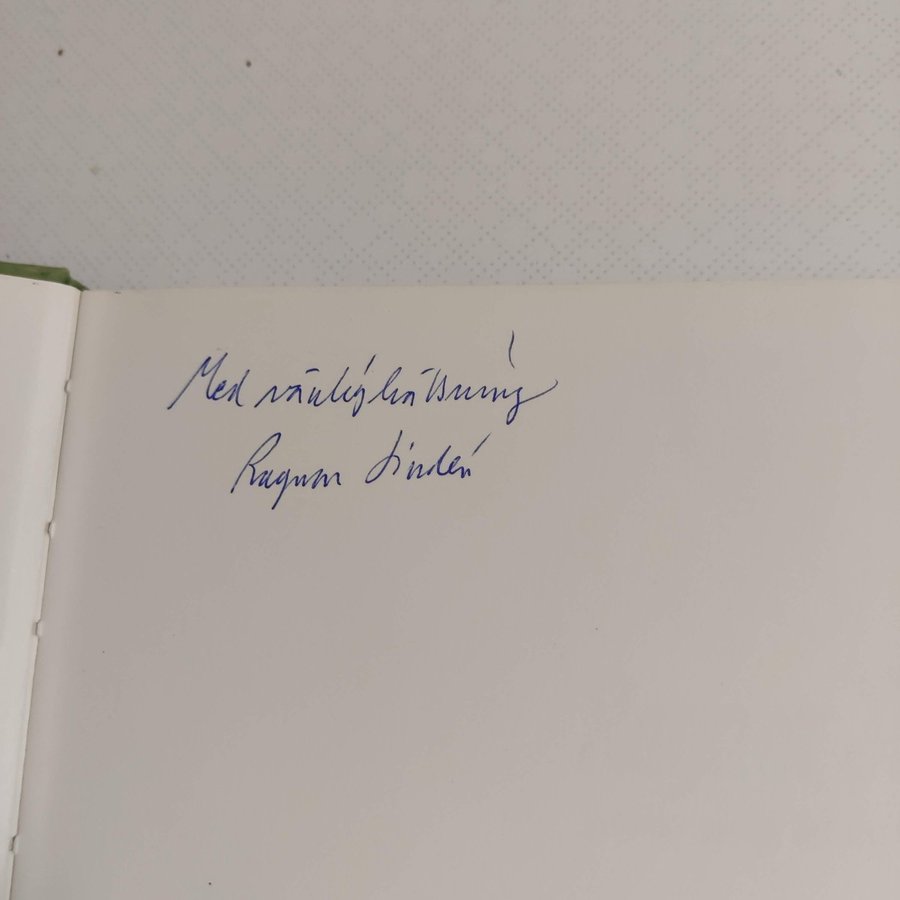 Med vänlig hälsning
Ragnar Lindén